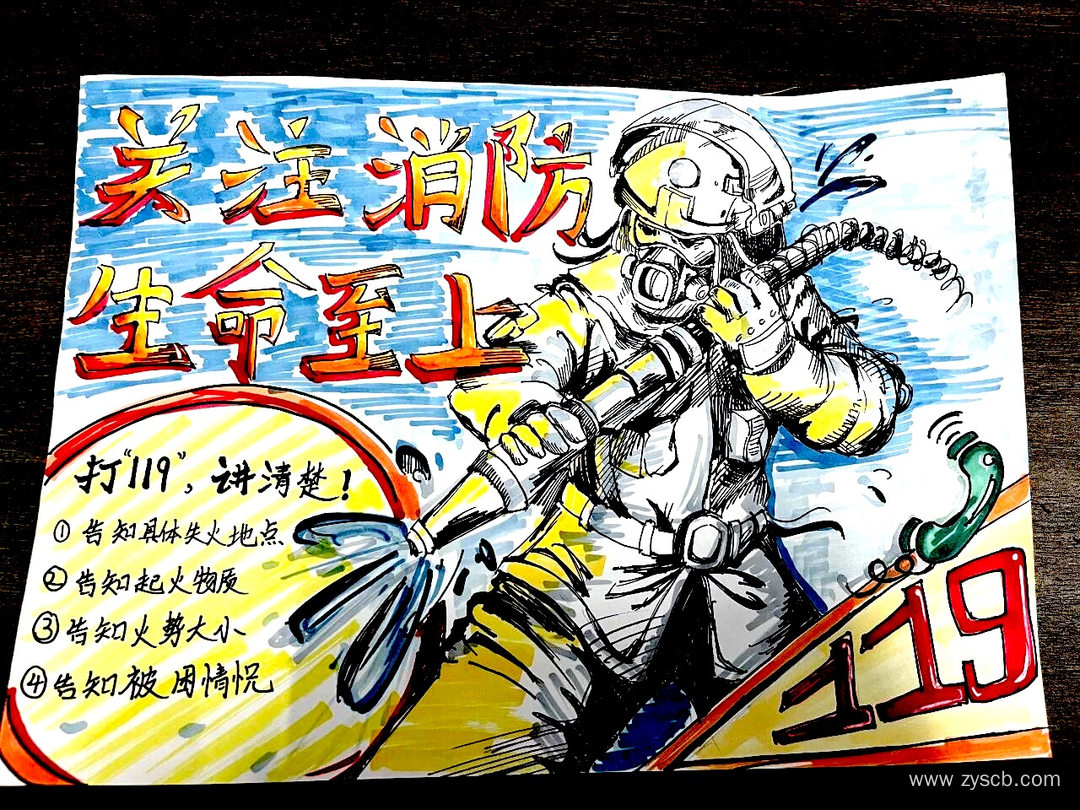 关注消防
生命至上
打“119”，讲清楚！
① 告知具体失火地点
② 告知起火物质
③ 告知火势大小
④ 告知被困情况
119
www.zyscb.com